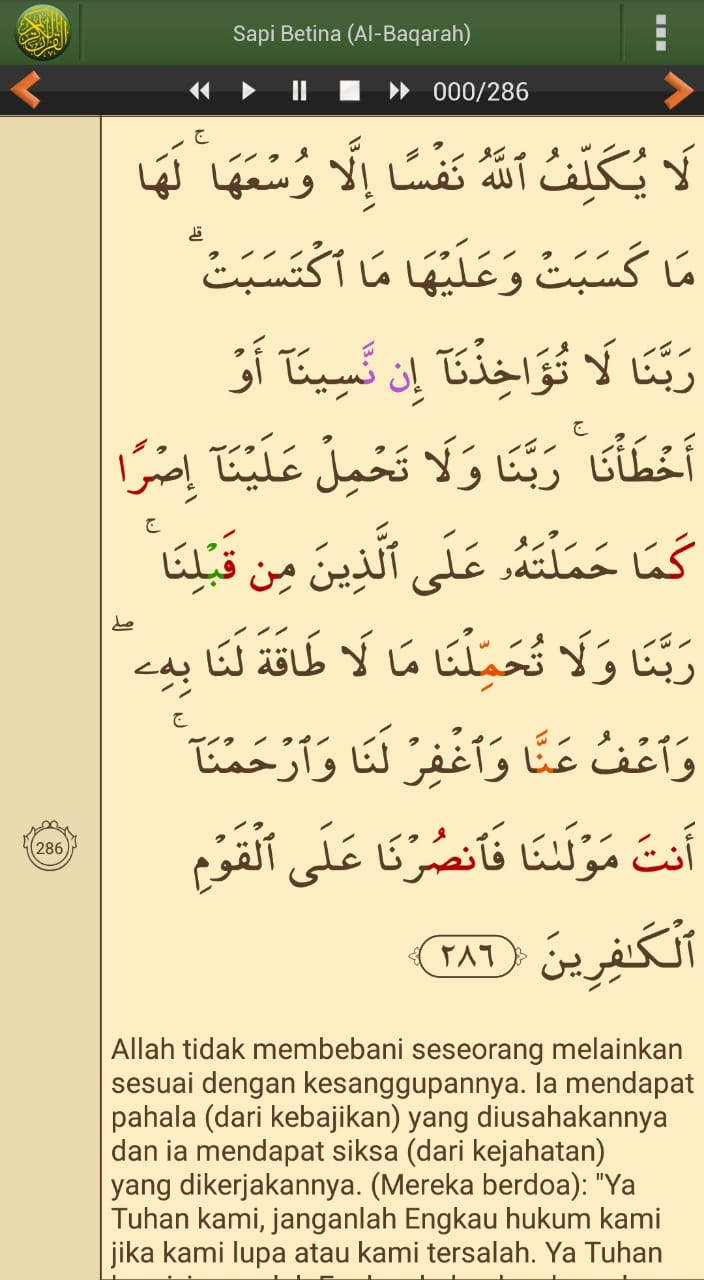 Sapi Betina (Al-Baqarah)
000/286
لَا يُكَلِّفُ ٱللَّهُ نَفْسًا إِلَّا وُسْعَهَا ۚ لَهَا
مَا كَسَبَتْ وَعَلَيْهَا مَا ٱكْتَسَبَتْ ۗ
رَبَّنَا لَا تُؤَاخِذْنَآ إِن نَّسِينَآ أَوْ
أَخْطَأْنَا ۚ رَبَّنَا وَلَا تَحْمِلْ عَلَيْنَآ إِصْرًا
كَمَا حَمَلْتَهُۥ عَلَى ٱلَّذِينَ مِن قَبْلِنَا ۚ
رَبَّنَا وَلَا تُحَمِّلْنَا مَا لَا طَاقَةَ لَنَا بِهِۦ ۖ
وَٱعْفُ عَنَّا وَٱغْفِرْ لَنَا وَٱرْحَمْنَآ ۚ
أَنتَ مَوْلَىٰنَا فَٱنصُرْنَا عَلَى ٱلْقَوْمِ
ٱلْكَـٰفِرِينَ ٢٨٦
286
Allah tidak membebani seseorang melainkan
sesuai dengan kesanggupannya. Ia mendapat
pahala (dari kebajikan) yang diusahakannya
dan ia mendapat siksa (dari kejahatan)
yang dikerjakannya. (Mereka berdoa): "Ya
Tuhan kami, janganlah Engkau hukum kami
jika kami lupa atau kami tersalah. Ya Tuhan